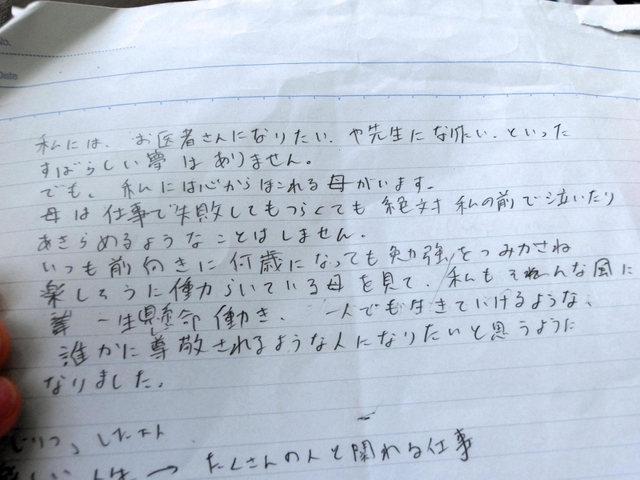 No.
Date
私には、お医者さんになりたい、や先生になりたい、といった
すばらしい夢はありません。
でも、私には心からほこれる母がいます。
母は仕事で失敗してもつらくても絶対私の前で泣いたり
あきらめるようなことはしません。
いつも前向きに何歳になっても勉強をつみかさね
楽しそうに働からいている母を見て、私もそんな風に
一生懸命働き、一人でも生きていけるような、
誰かに尊敬されるような人になりたいと思うように
なりました。
じりつ、した大人
人生→たくさんの人と関われる仕事